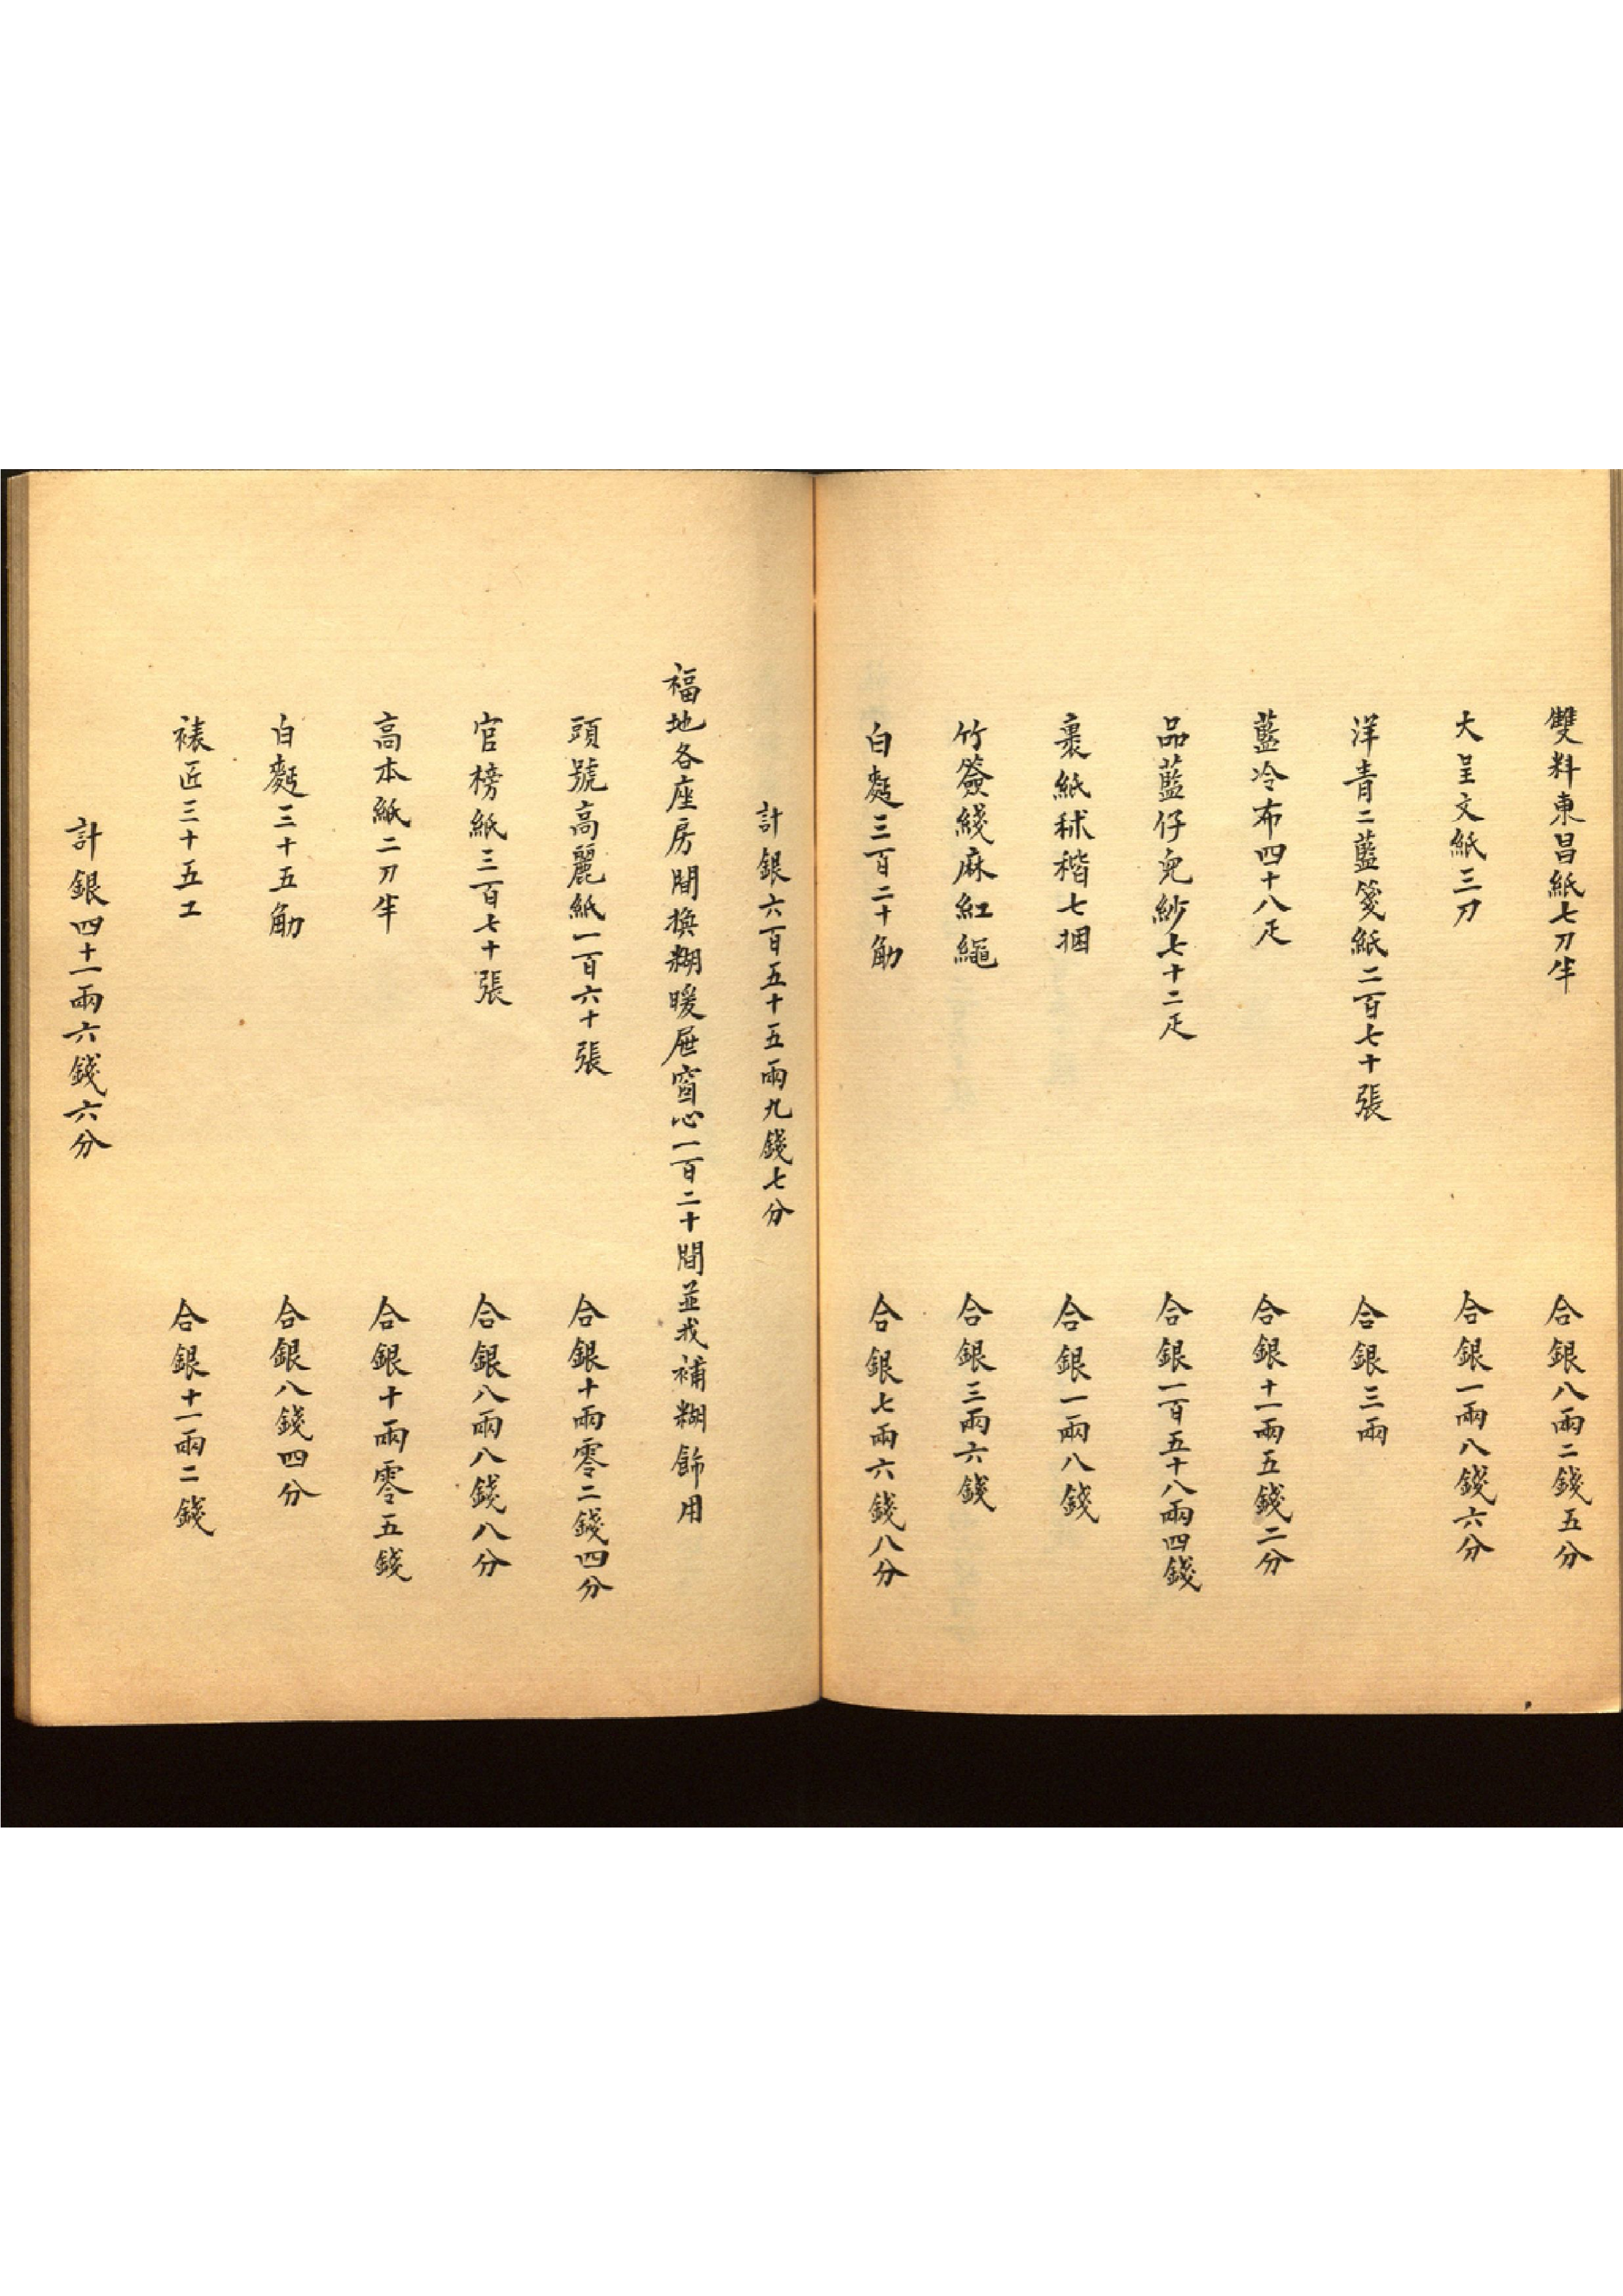 雙料東昌紙七刀半 合銀八兩二錢五分
大呈文紙三刀 合銀一兩八錢六分
洋青二藍箋紙二百七十張 合銀三兩
藍冷布四十八疋 合銀十一兩五錢二分
品藍仔兒紗七十二疋 合銀一百五十八兩四錢
裹紙秫稭七捆 合銀一兩八錢
竹簽綫麻紅繩 合銀三兩六錢
白麪三百二十觔 合銀七兩六錢八分
計銀六百五十五兩九錢七分
福地各座房間換糊暖屉窗心一百二十間並找補糊飾用
頭號高麗紙一百六十張 合銀十兩零二錢四分
官榜紙三百七十張 合銀八兩八錢八分
高本紙二刀半 合銀十兩零五錢
白麪三十五觔 合銀八錢四分
裱匠三十五工 合銀十一兩二錢
計銀四十一兩六錢六分